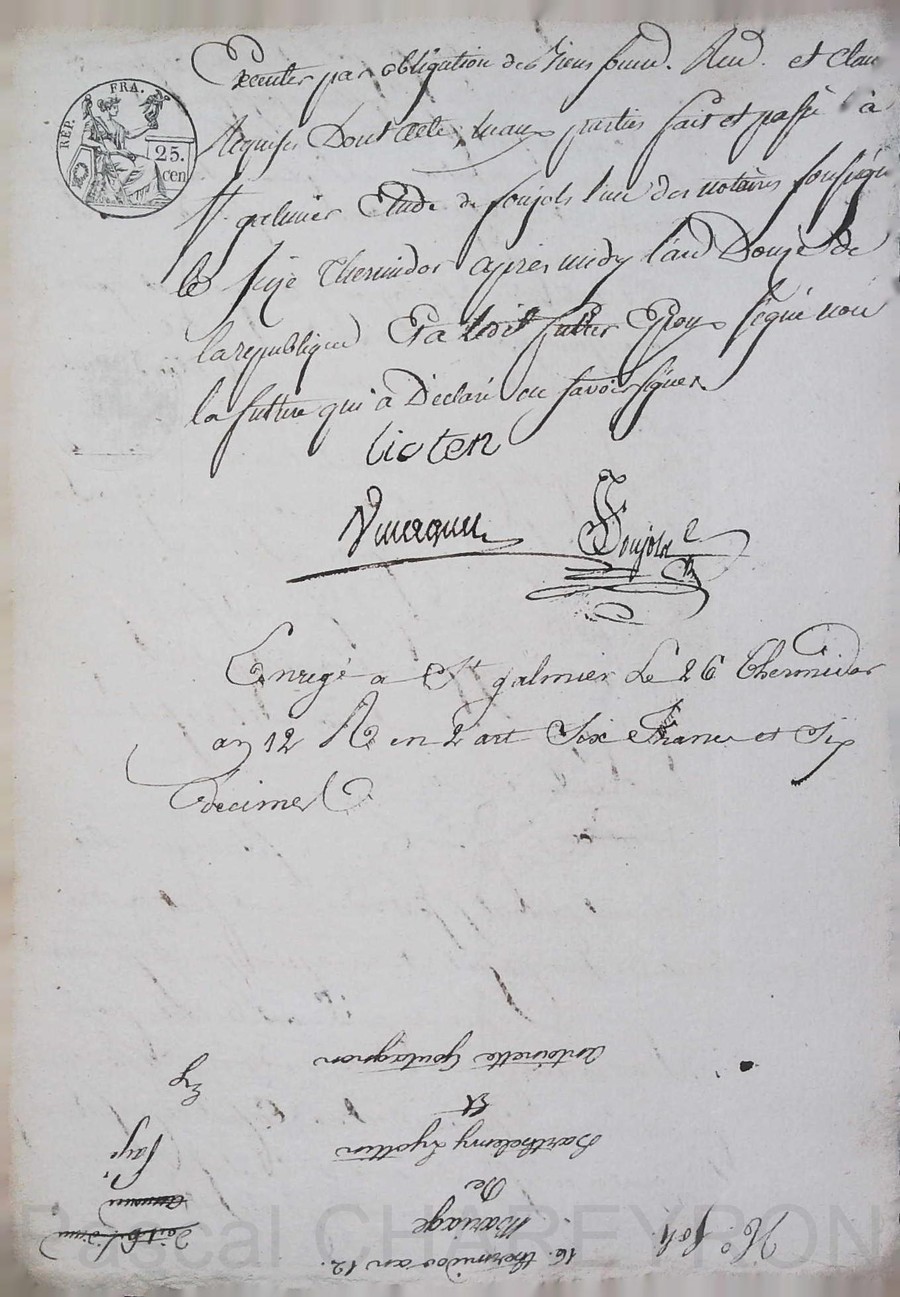 REP. FRA.
25.
cen
Executer par obligation des biens soum. Ren. et clau
Requises Dont acte, aux parties fait et passé à
St. galmier Etude de soujols l'un des notaires soussignés
le seize Thermidor apres midy l'an Douze de
la republique Et a ledit futur Epoux signé non
la future qui a Déclaré ne savoir signer
lioten
Soujols
Enregé a St galmier Le 26 thermidor
an 12 R en 2 art Six Francs et Six
decimes
16. thermidor an 12.
Mariage
De
Barthelemy Lyottin
Et
antoinette Goutagnon
No.
payé
Pascal CHABEYRON